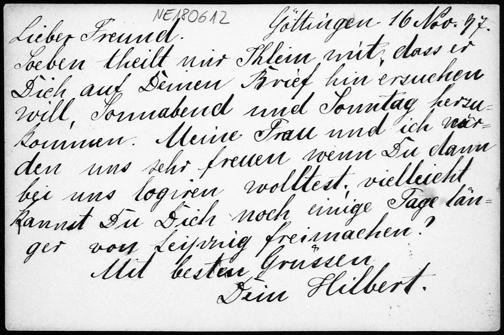 NE180612
Göttingen 16 Nov. 97.
Lieber Freund.
Soeben theilt mir Klein mit, dass er
Dich auf Deinen Brief hin ersuchen
will, Sonnabend und Sonntag herzu-
kommen. Meine Frau und ich wür-
den uns sehr freuen wenn Du dann
bei uns logiren wolltest. vielleicht
kannst Du Dich noch einige Tage län-
ger von Leipzig freimachen?
Mit besten Grüssen
Dein Hilbert.